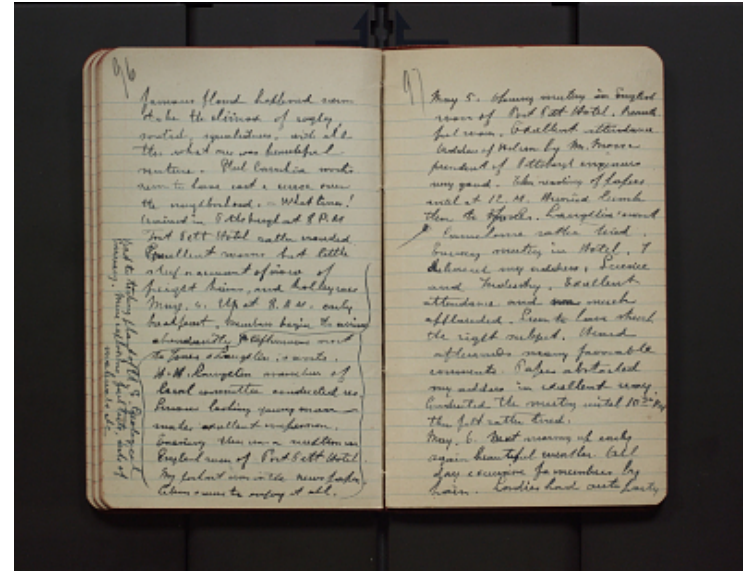 96
famous flood happened seem
to be the climax of ugly,
sordid, squalidness, and all
this what once was beautiful
nature. Steel Carnelia works
seem to have cast a curse over
the neighborhood. – What times!
Arrived in Pittsburgh at 8 P.M
Fort Pitt Hotel rather crowded
Excellent rooms but little
sleep on account of noise of
freight trains, and trolley cars
May. 4. Up at 8. A.M. early
breakfast. Members begin to arrive
abundantly. Afternoon went
to Jones & Laughlin's works.
Laughlin member of
Local committee conducted us.
looking young man
makes excellent impression.
Evening there was a reception in
English room of Fort Pitt Hotel.
My portrait was in the news papers.
seems to enjoy it all.
Had to testing plant of U.S. Geological
Survey. Mine explosions, fuel tests, tests of
materials etc
97
May 5. Opening meeting in English
room of Fort Pitt Hotel. Beauti-
ful room. Excellent attendance
Address of Welcome by Mr. Morse
president of Pittsburgh engineers
very good. Then reading of papers
until at 12. M. Hurried lunch
then to works. Laughlin's went
I came home rather tired.
Evening meeting in Hotel. I
delivered my address, Science
and Industry. Excellent
attendance and much
applauded. Seem to have struck
the right subject. Heard
afterwards many favorable
comments. Papers abstracted
my address in excellent way.
Conducted the meeting until 10
then felt rather tired.
May. 6. Next morning up early
again beautiful weather. All
day excursion for members by
train. Ladies had auto party